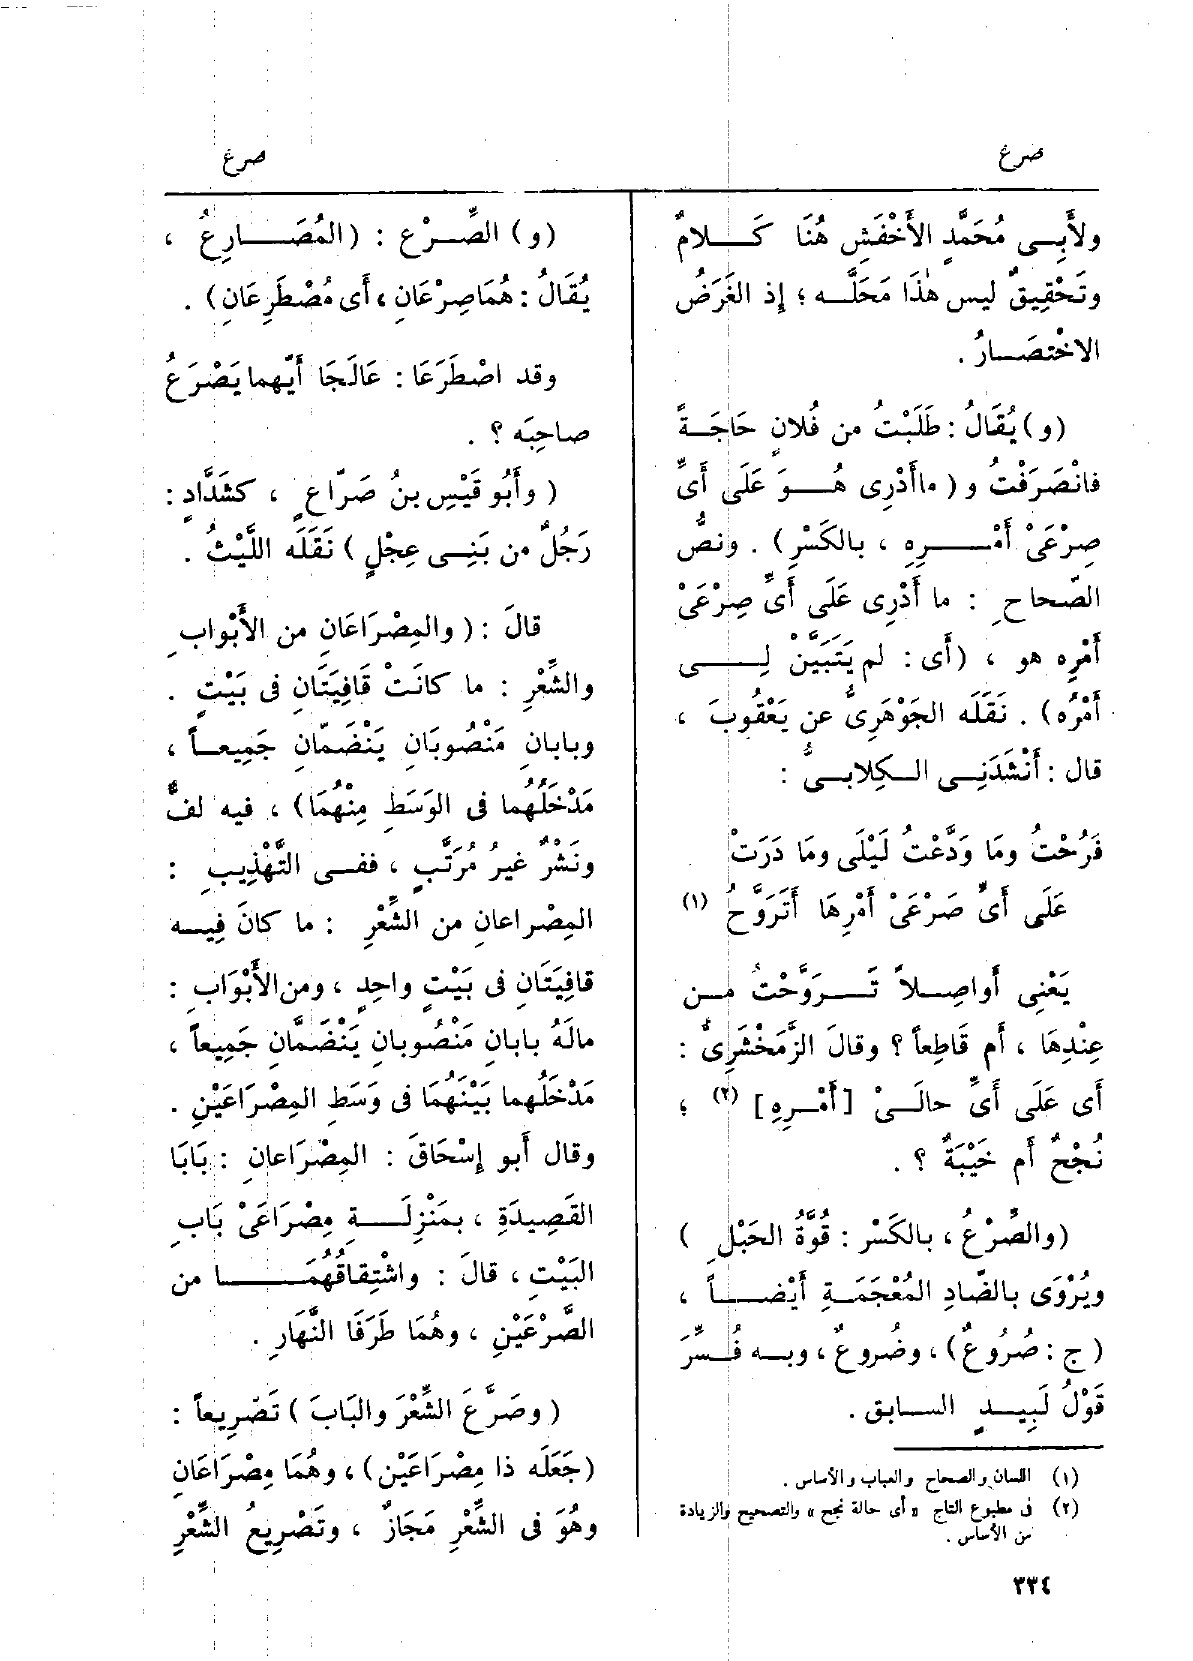 صرع
صرع
ولأَبِـى مُحَمَّدٍ الأَخْفَشِ هُنَا كَـلامٌ
وتَحْقِيقٌ ليس هٰذَا مَحَلَّـه ؛ إذ الغَرَضُ
الاخْتِصَـارُ .
(و) يُقَالُ : طَلَبْتُ من فُلانٍ حَاجَـةً
فانْصَرَفْتُ و ( ماأَدْرِى هُـوَ عَلَى أَىِّ
صِرْعَىْ أَمْـرِهِ ، بالكَسْرِ) . ونصُّ
الصّحاحِ : ما أَدْرِى عَلَى أَىِّ صِرْعَىْ
أَمْرِه هو ، (أَى : لم يَتَبَيَّنْ لِـى
أَمْرُه) . نَقَلَه الجَوْهَرِىُّ عن يَعْقُوبَ ،
قال : أَنْشَدَنِـى الـكِلابىُّ :
فَرُحْتُ ومَا وَدَّعْتُ لَيْلَى ومَا دَرَتْ
عَلَى أَىِّ صَرْعَىْ أَمْرِهَا أَتَرَوَّحُ (١)
يَعْنِى أَواصِـلاً تَـرَوَّحْتُ مـن
عِنْدِهَا ، أم قَاطِعاً ؟ وقالَ الزَّمَخْشَرِىُّ :
أَى عَلَى أَىِّ حالَـىْ [أَمْـرِهِ] (٢) ؛
نُجْحٌ أَم خَيْبَةٌ ؟ .
(والصِّرْعُ ، بالكَسْرِ : قُوَّةُ الحَبْلِ )
ويُرْوَى بالضَّادِ المُعْجَمَـةِ أَيْضـاً ،
( ج : صُرُوعٌ) ، وضُروعٌ ، وبـه فُـسِّرَ
قَوْلُ لَبِيـدٍ السـابق .
(١) اللسان والصحاح والعباب والأساس .
(٢) فى مطبوع التاج « أى حالة نجح » والتصحيح والزيادة
من الأساس .
٣٣٤
(و) الصِّـرْع : (المُصَـارِعُ ،
يُقَالُ : هُمَا صِرْعَانِ ، أَى مُصْطَرِعَانِ) .
وقد اصْطَرَعَا : عَالَجَا أَيّهما يَصْرَعُ
صاحِبَه ؟ .
( وأَبُو قَيْسِ بنُ صَرّاعٍ ، كشَدَّادٍ :
رَجُلٌ من بَنِـى عِجْلٍ ) نَقَلَه اللَّيْثُ .
قالَ : ( والمِصْرَاعَانِ من الأَبْوابِ
والشِّعْرِ : ما كانَتْ قَافِيَتَانِ فى بَيْتٍ .
وبابانِ مَنْصُوبَانِ يَنْضَمّانِ جَمِيعـاً ،
مَدْخَلُهُما فى الوَسَطِ مِنْهُمَا) ، فيه لفٌّ
ونَشْرٌ غيرُ مُرَتَّبٍ ، ففـى التَّهْذِيبِ :
المِصْراعانِ من الشِّعْرِ : ما كانَ فِيـه
قافِيَتَانِ فى بَيْتٍ واحِدٍ ، ومن الأَبْوَابِ :
مالَهُ بابانِ مَنْصُوبانِ يَنْضَمَّانِ جَمِيعاً ،
مَدْخَلُهما بَيْنَهُمَا فى وَسَطِ المِصْرَاعَيْنِ .
وقال أَبو إِسْحَاقَ : المِصْرَاعانِ : بَابَا
القَصِيدَةِ ، بمَنْزِلَـةِ مِصْرَاعَىْ بَابِ
البَيْتِ ، قالَ : واشْتِقاقُهُمَـا من
الصَّرْعَيْنِ ، وهُمَا طَرَفَا النَّهَارِ .
( وصَرَّعَ الشِّعْرَ والبَابَ ) تَصْرِيعاً :
(جَعَلَه ذا مِصْرَاعَيْنِ) ، وهُمَا مِصْرَاعَانِ
وهُوَ فى الشِّعْرِ مَجَازٌ ، وتَصْرِيعُ الشِّعْرِ